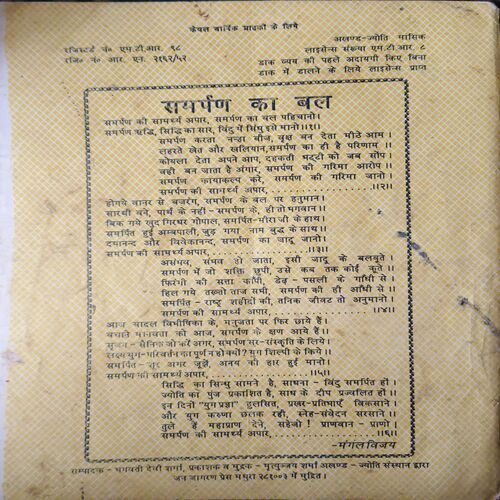 केवल वार्षिक ग्राहकों के लिये
रजिस्टर्ड नं० एम.टी.आर. ९८
रजि० नं० आर. एन. २१६२/५२
अखण्ड-ज्योति मासिक
लाइसेन्स संख्या एम.टी.आर. ८
डाक व्यय की पहले अदायगी किए बिना
डाक में डालने के लिये लाइसेन्स प्राप्त
समर्पण का बल
समर्पण की सामर्थ्य अपार, समर्पण का बल पहिचानो।
समर्पण सद्धि, सिद्धि का सार, बिंदु में सिंधु इसे मानो।।१।।
समर्पण करता नन्हा बीज, वृक्ष बन देता मीठे आम।
लहरते खेत और खलिहान, समर्पण का ही है परिणाम।।
कोयला देता अपने आप, दहकती भट्टी को जब सौंप।
वही बन जाता है अंगार, समर्पण की गरिमा आरोप।।
समर्पण कायाकल्प करे, समर्पण की गरिमा जानो।
समर्पण की सामर्थ्य अपार, ..................।।२।।
होगये वानर से बजरंग, समर्पण के बल पर हनुमान।
सारथी बने, पार्थ के नहीं - समर्पण के, ही तो भगवान।।
बिक गये खुद गिरधर गोपाल, समर्पित-मीरा जी के हाथ।
समर्पित हुई अम्बपाली, जुड़ गया नाम बुद्ध के साथ।।
दयानन्द और विवेकानन्द, समर्पण का जादू जानो।
समर्पण की सामर्थ्य अपार, ..................।।३।।
असंभव, संभव हो जाता, इसी जादू के बलबूते।
समर्पण में जो शक्ति छुपी, उसे कब तक कोई कूते।।
फिरंगी की सत्ता काँपी, डेढ़ - पसली के गाँधी से।
हिल गये तख्तो ताज सभी, समर्पण की ही आँधी से।।
समर्पित - राष्ट्र शहीदों की, तनिक जीवट तो अनुमानो।
समर्पण की सामर्थ्य अपार, ..................।।४।।
आज बादल विभीषिका के, मनुजता पर फिर छाये हैं।
बचाने मानवता को आज, समर्पण के क्षण आये हैं।।
सृजन - सैनिक जो करें अगर, समर्पण सुर-संस्कृति के लिये।
लक्ष्य युग-परिवर्तन का पूर्ण न हो क्यों? युग शिल्पी के किये।।
समर्पित - शूर अगर जूझें, अनय को हार हुई मानो।
समर्पण की सामर्थ्य अपार, ..................।।५।।
सिद्धि का सिन्धु सामने है, साधना - बिंदु समर्पित हो।
ज्योति का पुंज प्रकाशित है, साध के दीप प्रज्वलित हों।।
इन दिनों "युग प्रज्ञा" हुलसित, प्रखर-प्रतिभाएँ विकसाने।
और युग करुणा छलक रही, स्नेह-संवेदन सरसाने।।
तुले हैं महाप्राण देने, सहेजो! प्राणवान - प्राणो।
समर्पण की सामर्थ्य अपार, ..................।।६।।
-मंगलविजय
सम्पादक - भगवती देवी शर्मा, प्रकाशक व मुद्रक - मृत्युन्जय शर्मा अखण्ड - ज्योति संस्थान द्वारा
जन जागरण प्रेस मथुरा २८१००३ में मुद्रित।